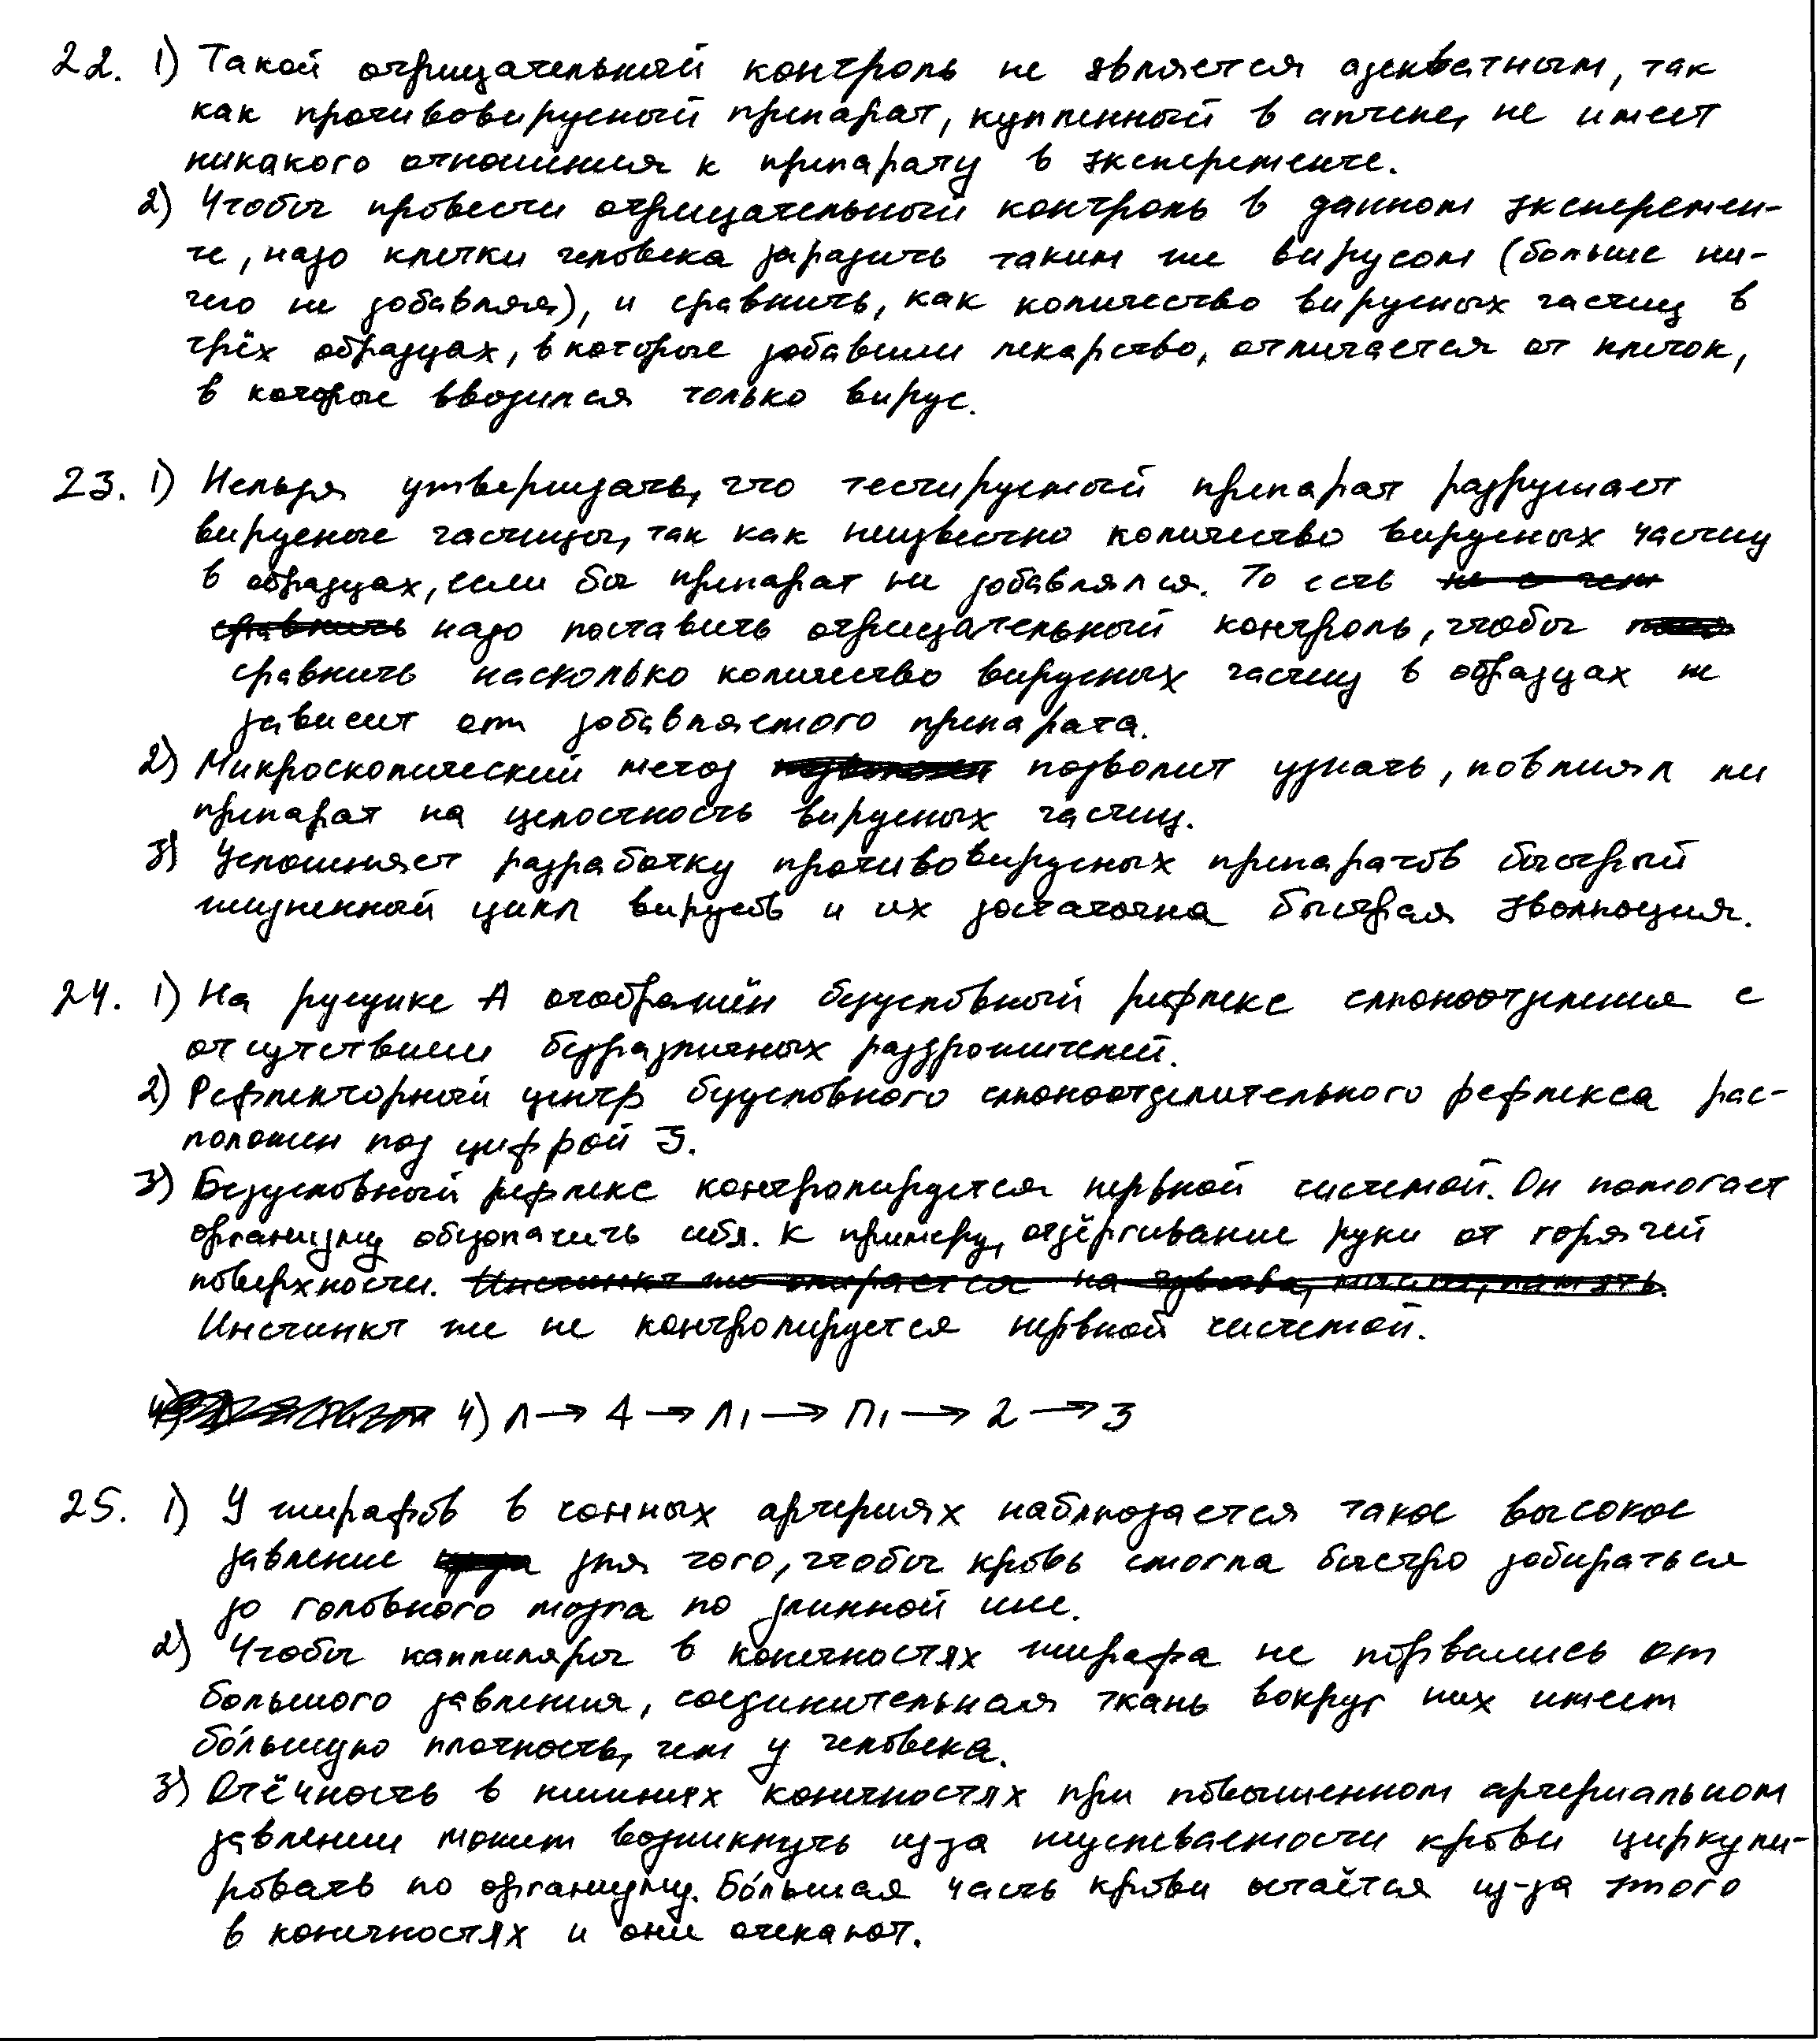 22. 1) Такой отрицательный контроль не является адекватным, так
как противовирусный препарат, купленный в аптеке, не имеет
никакого отношения к препарату в эксперементе.
2) Чтобы провести отрицательный контроль в данном эксперемен-
те, надо клетки человека заразить таким же вирусом (больше ни-
чего не добавляя), и сравнить, как количество вирусных частиц в
трёх образцах, в которые добавили лекарство, отличается от клеток,
в которые вводился только вирус.
23. 1) Нельзя утверждать, что тестируемый препарат разрушает
вирусные частицы, так как неизвестно количество вирусных частиц
в образцах, если бы препарат не добавлялся. То есть не с чем
сравнить надо поставить отрицательный контроль, чтобы
сравнить насколько количество вирусных частиц в образцах не
зависит от добавляемого препарата.
2) Микроскопический метод позволит узнать, повлиял ли
препарат на целостность вирусных частиц.
3) Усложняет разработку противовирусных препаратов быстрый
жизненный цикл вирусов и их достаточна быстрая эволюция.
24. 1) На русунке А отображён безусловный рефлекс слюноотделения с
отсутствием безразличных раздрожителей.
2) Рефлекторный центр безусловного слюноотделительного рефлекса рас-
положен под цифрой 3.
3) Безусловный рефлекс контролируется нервной системой. Он помогает
организму обезопасить себя. К примеру, отдёргивание руки от горячей
поверхности. Инстинкт же опирается на чувства, мысли, память.
Инстинкт же не контролируется нервной системой.
4) Л → 4 → Л1 → П1 → 2 → 3
25. 1) У жирафов в сонных артериях наблюдается такое высокое
давление для того, чтобы кровь смогла быстро добираться
до головного мозга по длинной шее.
2) Чтобы каппиляры в конечностях жирафа не порвались от
большого давления, соединительная ткань вокруг них имеет
бо́льшую плотность, чем у человека.
3) Отёчность в нижних конечностях при повышенном артериальном
давлении может возникнуть из-за неуспеваемости крови циркули-
ровать по организму. Бо́льшая часть крови остаётся из-за этого
в конечностях и они отекают.